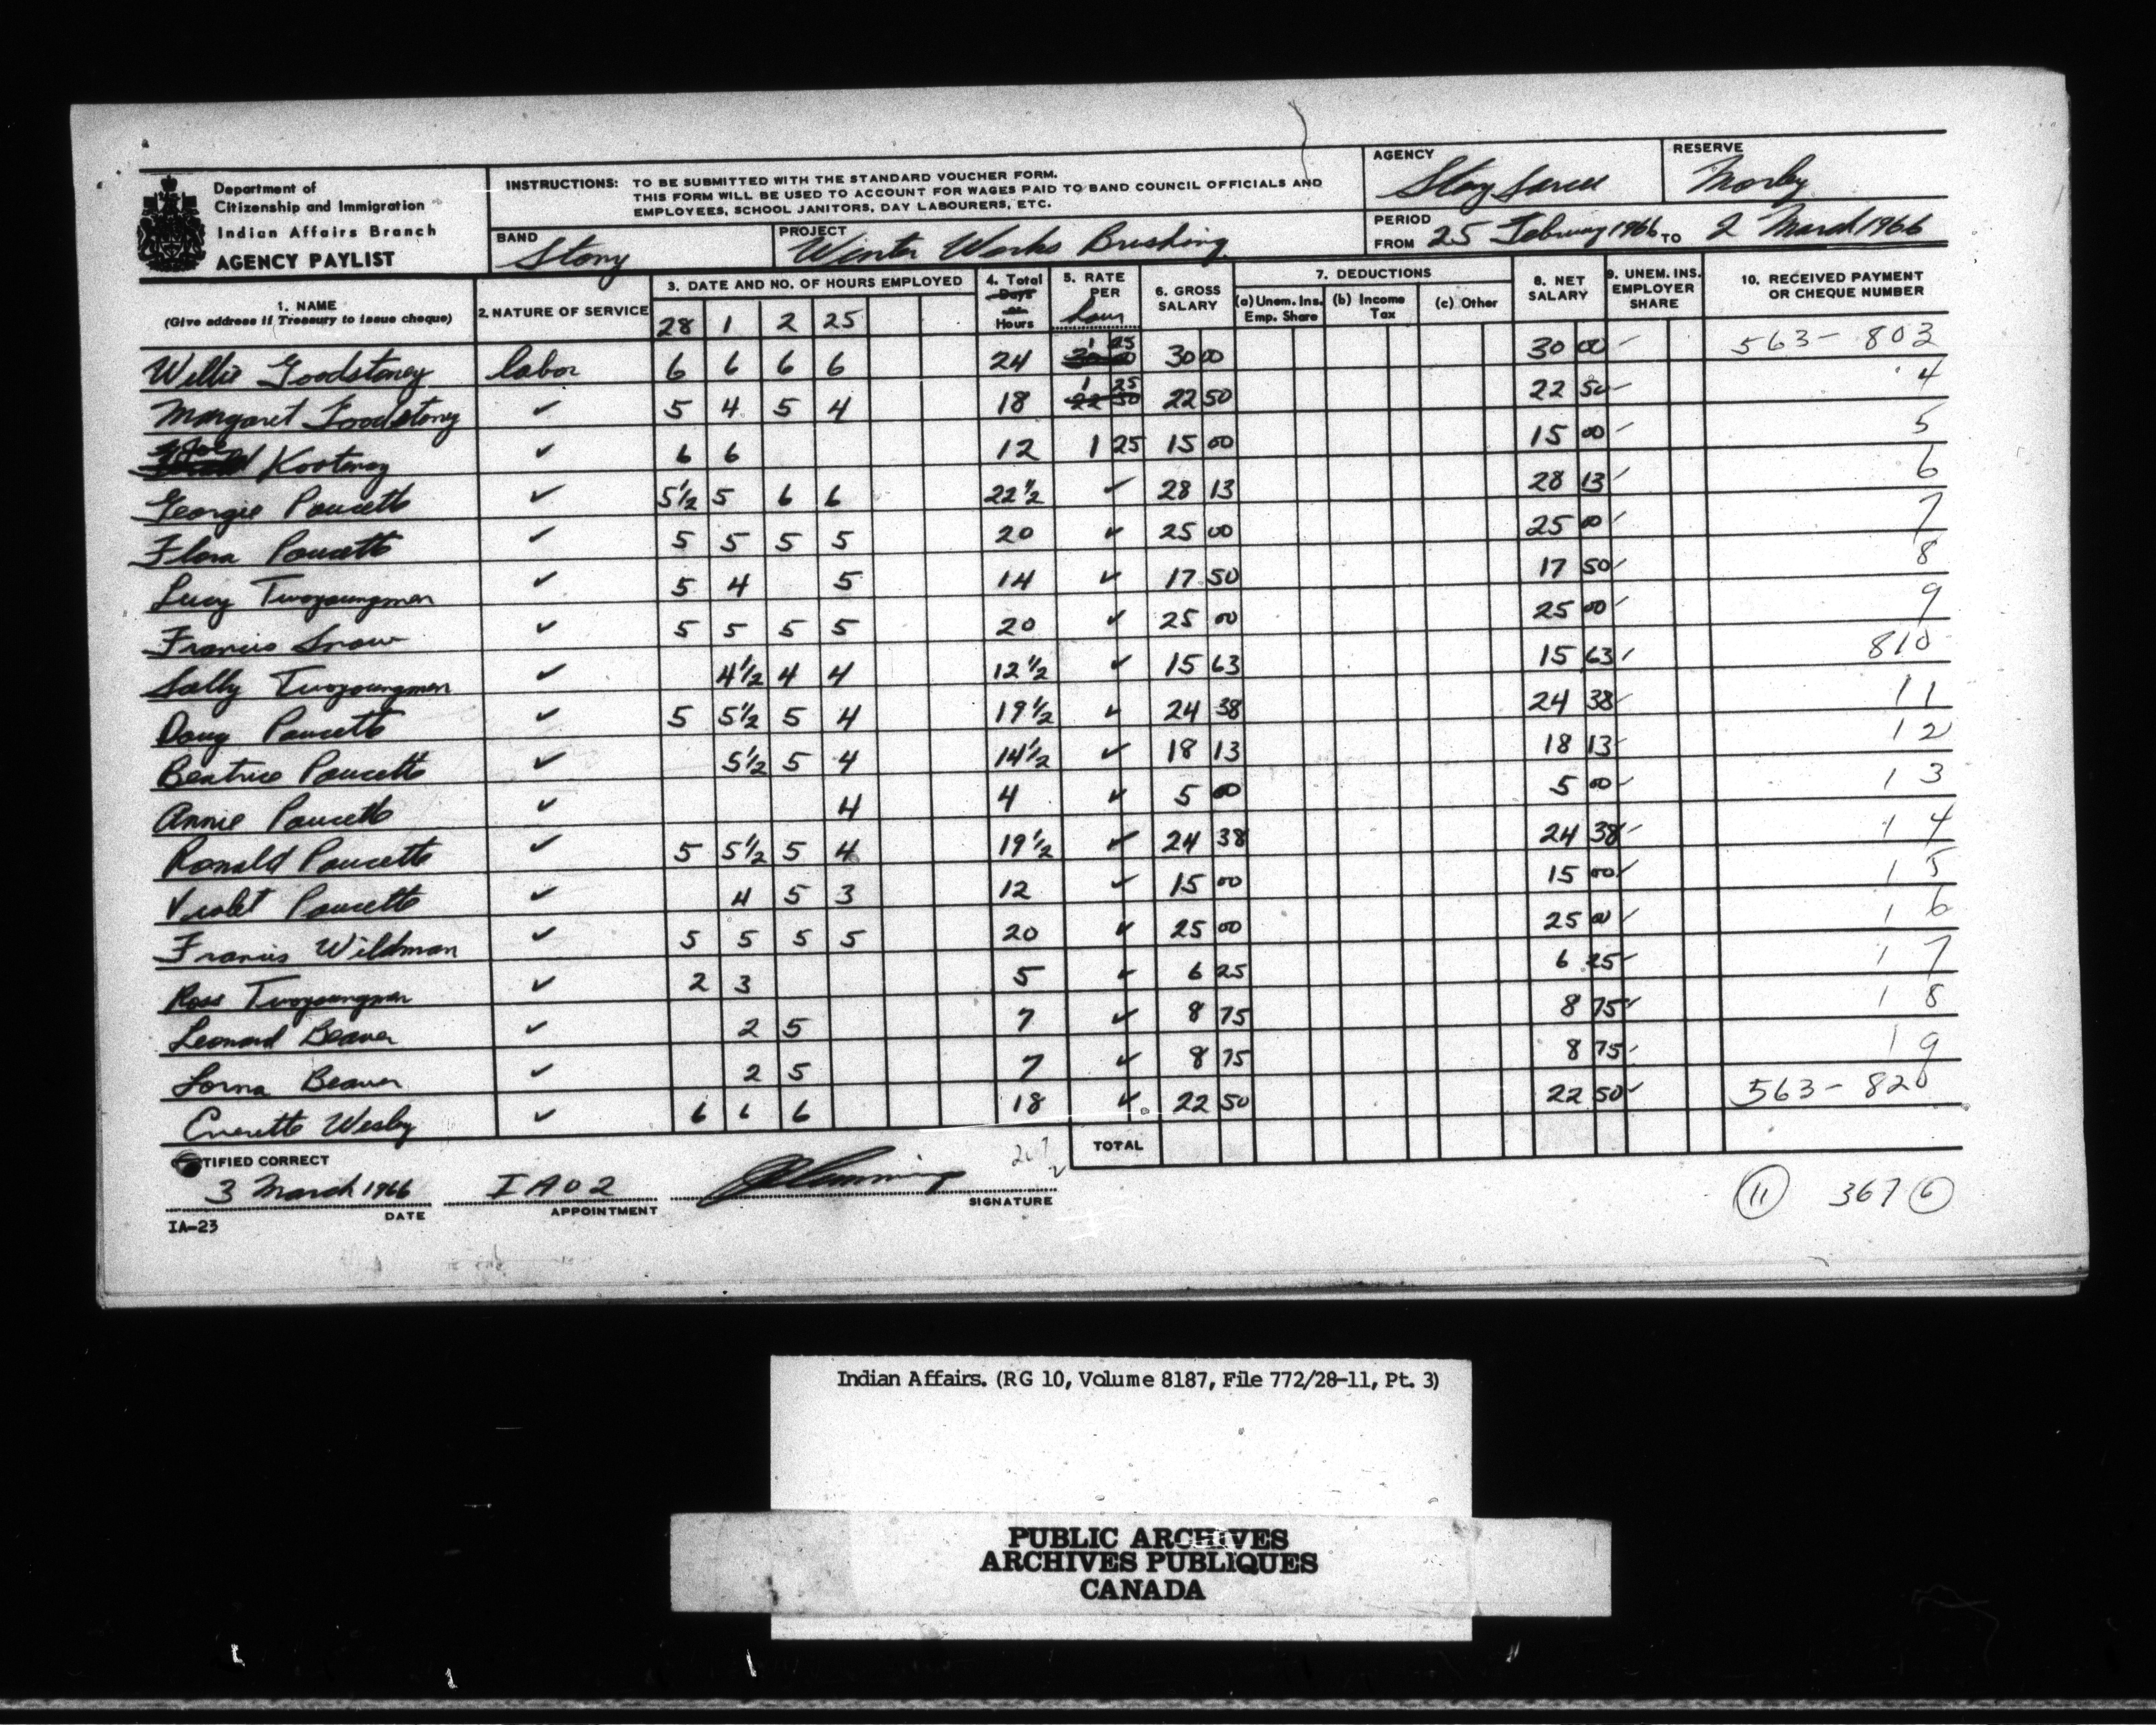 Department of
Citizenship and Immigration
Indian Affairs Branch
AGENCY PAYLIST
INSTRUCTIONS: TO BE SUBMITTED WITH THE STANDARD VOUCHER FORM.
THIS FORM WILL BE USED TO ACCOUNT FOR WAGES PAID TO BAND COUNCIL OFFICIALS AND
EMPLOYEES, SCHOOL JANITORS, DAY LABOURERS, ETC.
AGENCY Stony Sarcee
RESERVE Morley
BAND Stony
PROJECT Winter Works Brushing
PERIOD FROM 25 February 1966 TO 2 March 1966
1. NAME (Give address if Treasury to issue cheque)
2. NATURE OF SERVICE
3. DATE AND NO. OF HOURS EMPLOYED
28 1 2 25
4. Total Days or Hours
5. RATE PER hour
6. GROSS SALARY
7. DEDUCTIONS
(a) Unem. Ins. Emp. Share
(b) Income Tax
(c) Other
8. NET SALARY
9. UNEM. INS. EMPLOYER SHARE
10. RECEIVED PAYMENT OR CHEQUE NUMBER
Willie Goodstoney labor 6 6 6 6 24 1 25 30 00 30 00 563-803
Margaret Goodstoney ✓ 5 4 5 4 18 1 25 22 50 22 50 4
Kootenay ✓ 6 6 12 1 25 15 00 15 00 5
Georgie Poucette ✓ 5½ 5 6 6 22½ ✓ 28 13 28 13 6
Flora Poucette ✓ 5 5 5 5 20 ✓ 25 00 25 00 7
Lucy Twoyoungmen ✓ 5 4 5 14 ✓ 17 50 17 50 8
Francis Snow ✓ 5 5 5 5 20 ✓ 25 00 25 00 9
Sally Twoyoungmen ✓ 4½ 4 4 12½ ✓ 15 63 15 63 810
Doug Poucette ✓ 5 5½ 5 4 19½ ✓ 24 38 24 38 11
Beatrice Poucette ✓ 5½ 5 4 14½ ✓ 18 13 18 13 12
Annie Poucette ✓ 4 4 ✓ 5 00 5 00 13
Ronald Poucette ✓ 5 5½ 5 4 19½ ✓ 24 38 24 38 14
Violet Poucette ✓ 4 5 3 12 ✓ 15 00 15 00 15
Francis Wildman ✓ 5 5 5 5 20 ✓ 25 00 25 00 16
Ross Twoyoungmen ✓ 2 3 5 ✓ 6 25 6 25 17
Leonard Beaver ✓ 2 5 7 ✓ 8 75 8 75 18
Lorna Beaver ✓ 2 5 7 ✓ 8 75 8 75 19
Everette Wesley ✓ 6 6 6 18 ✓ 22 50 22 50 563-820
TOTAL
TIFIED CORRECT
3 March 1966 IA02
DATE APPOINTMENT SIGNATURE
IA-23
11 367 6
Indian Affairs. (RG 10, Volume 8187, File 772/28-11, Pt. 3)
PUBLIC ARCHIVES
ARCHIVES PUBLIQUES
CANADA